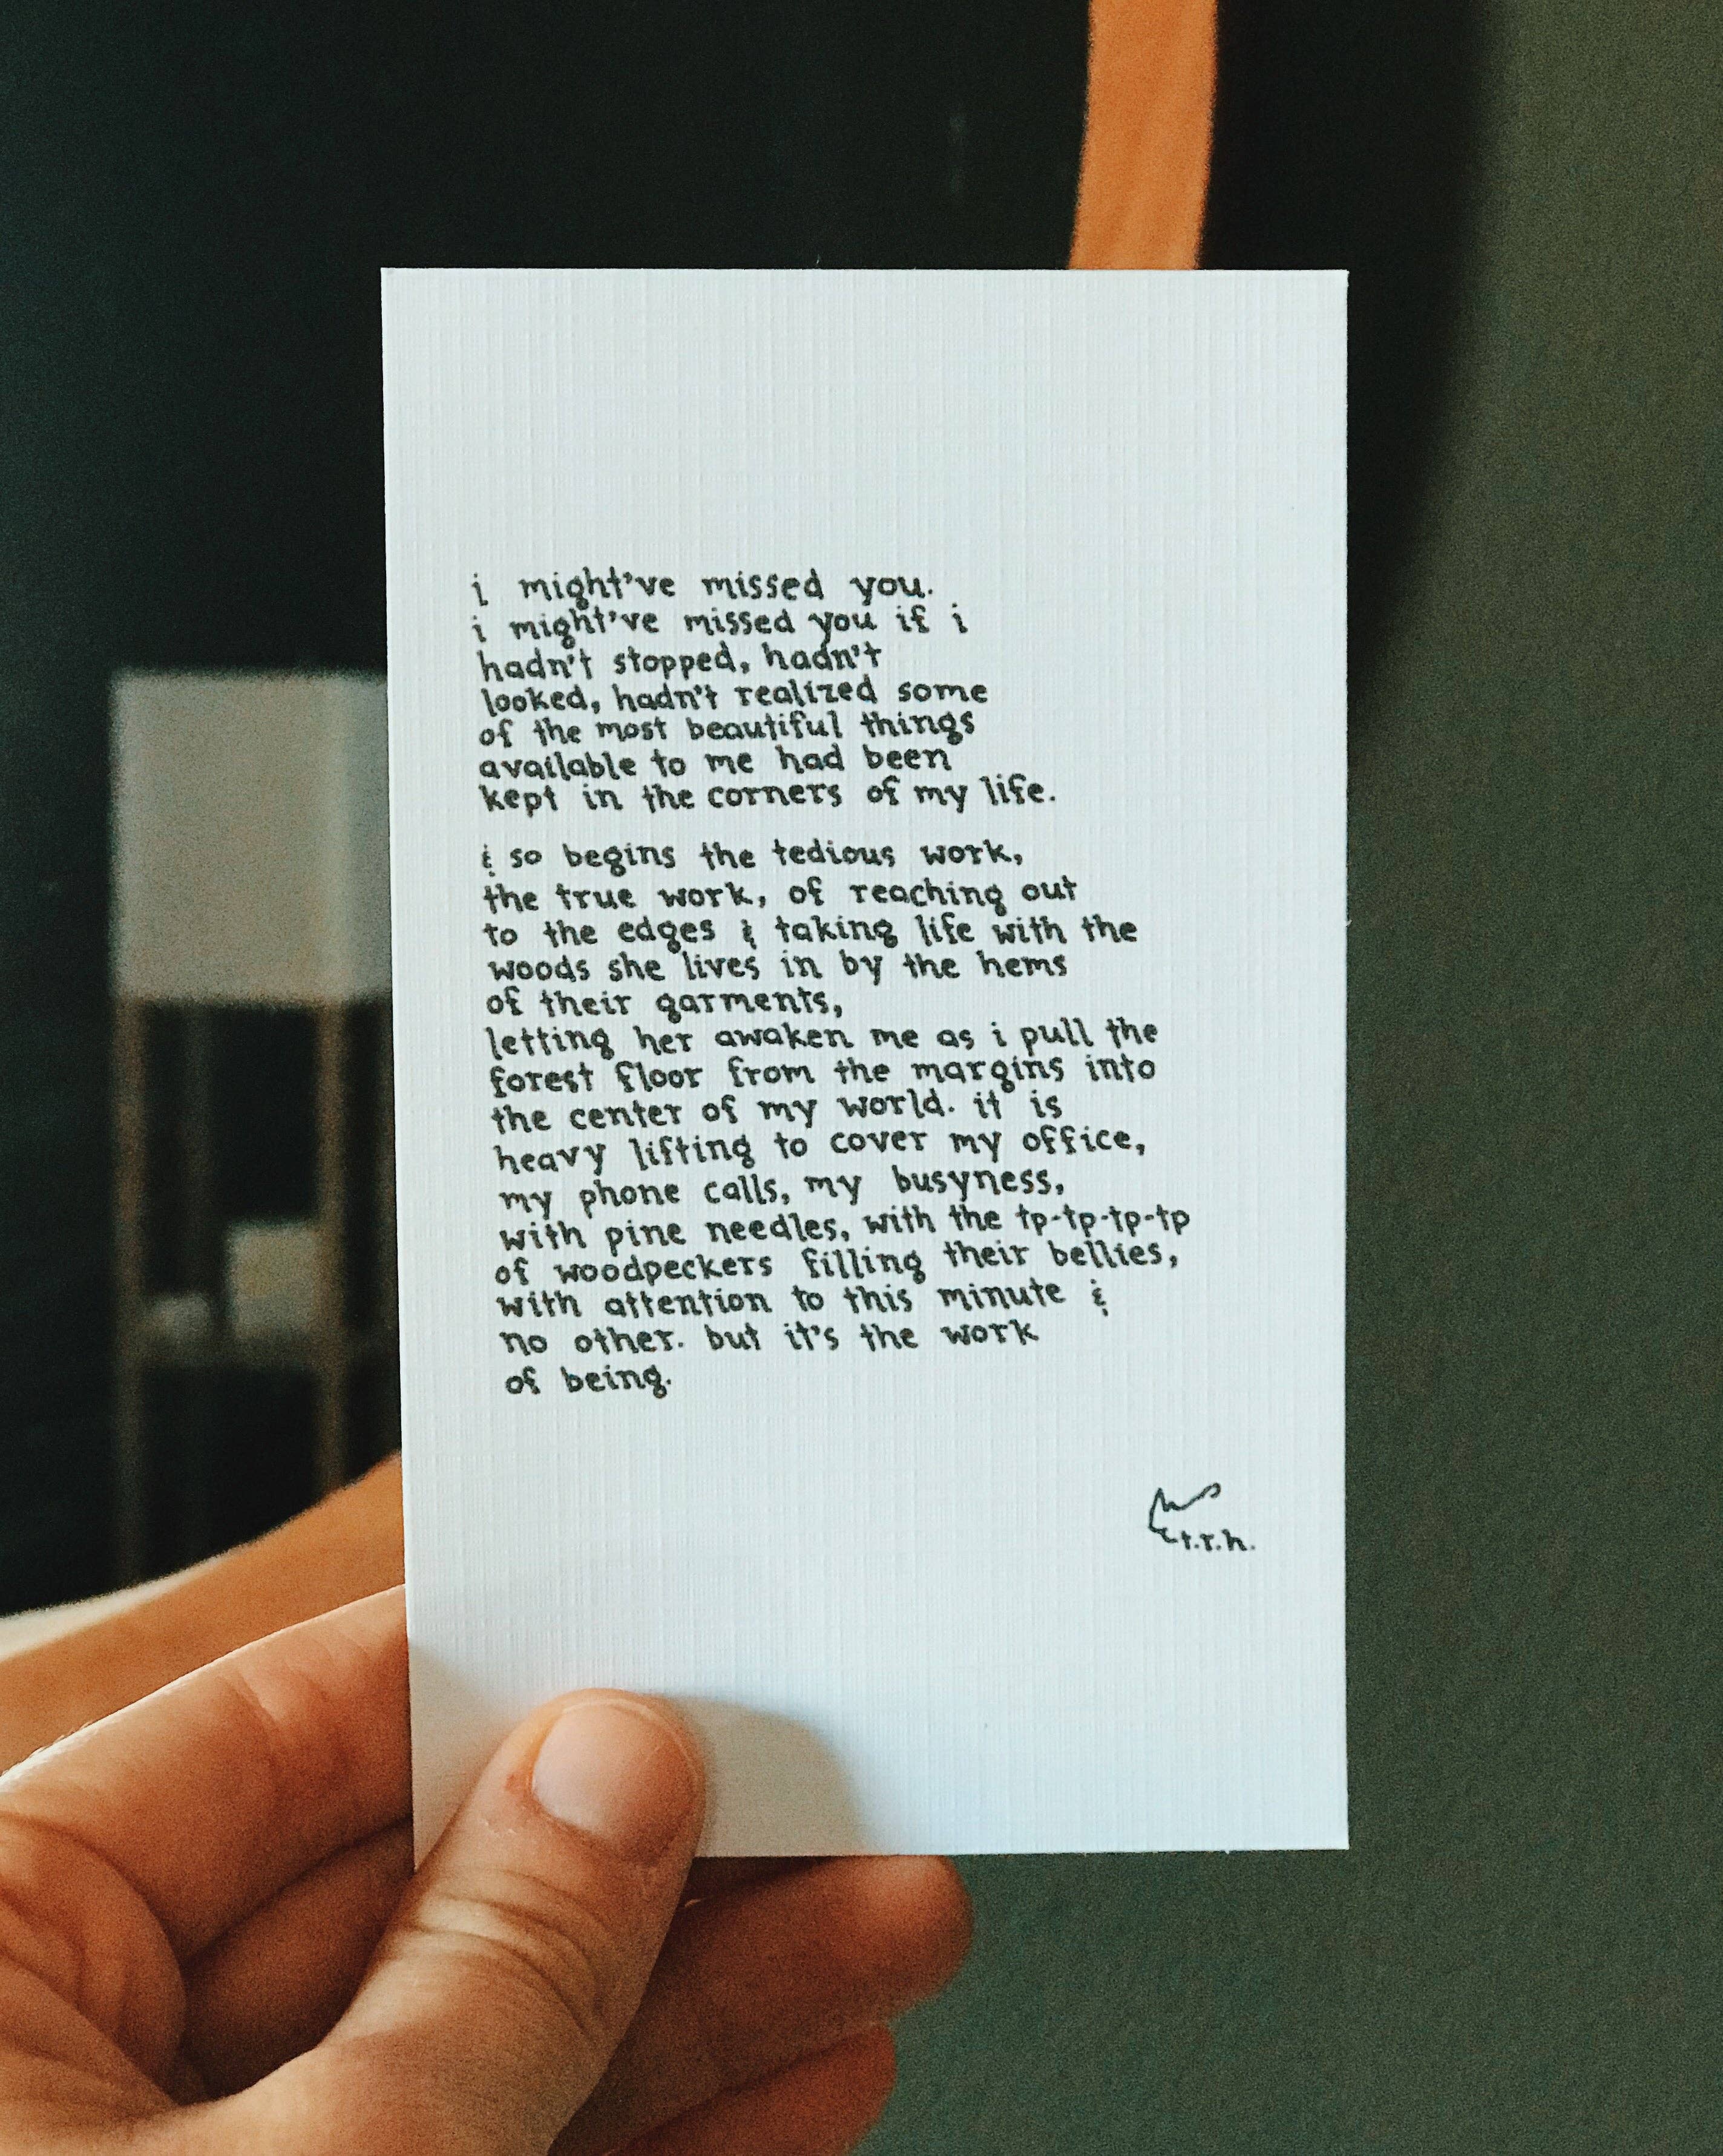 i might've missed you.
i might've missed you if i
hadn't stopped, hadn't
looked, hadn't realized some
of the most beautiful things
available to me had been
kept in the corners of my life.
& so begins the tedious work,
the true work, of reaching out
to the edges & taking life with the
woods she lives in by the hems
of their garments,
letting her awaken me as i pull the
forest floor from the margins into
the center of my world. it is
heavy lifting to cover my office,
my phone calls, my busyness,
with pine needles, with the tp-tp-tp-tp
of woodpeckers filling their bellies,
with attention to this minute &
no other. but it's the work
of being.
t.r.h.